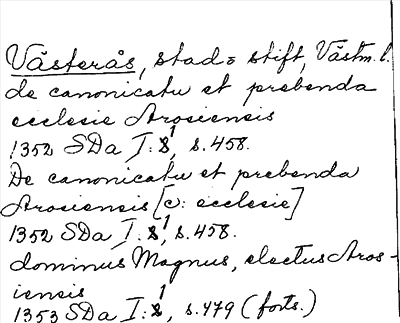 Västerås, stad o stift, Västm. l.
de canonicatu et prebenda
ecclesie Arosiensis
1352 SDa I:1, s. 458.
De canonicatu et prebenda
Arosiensis [c: ecclesie]
1352 SDa I:1, s. 458.
dominus Magnus, electus Aros-
iensis
1353 SDa I:1, s. 479 (forts.)